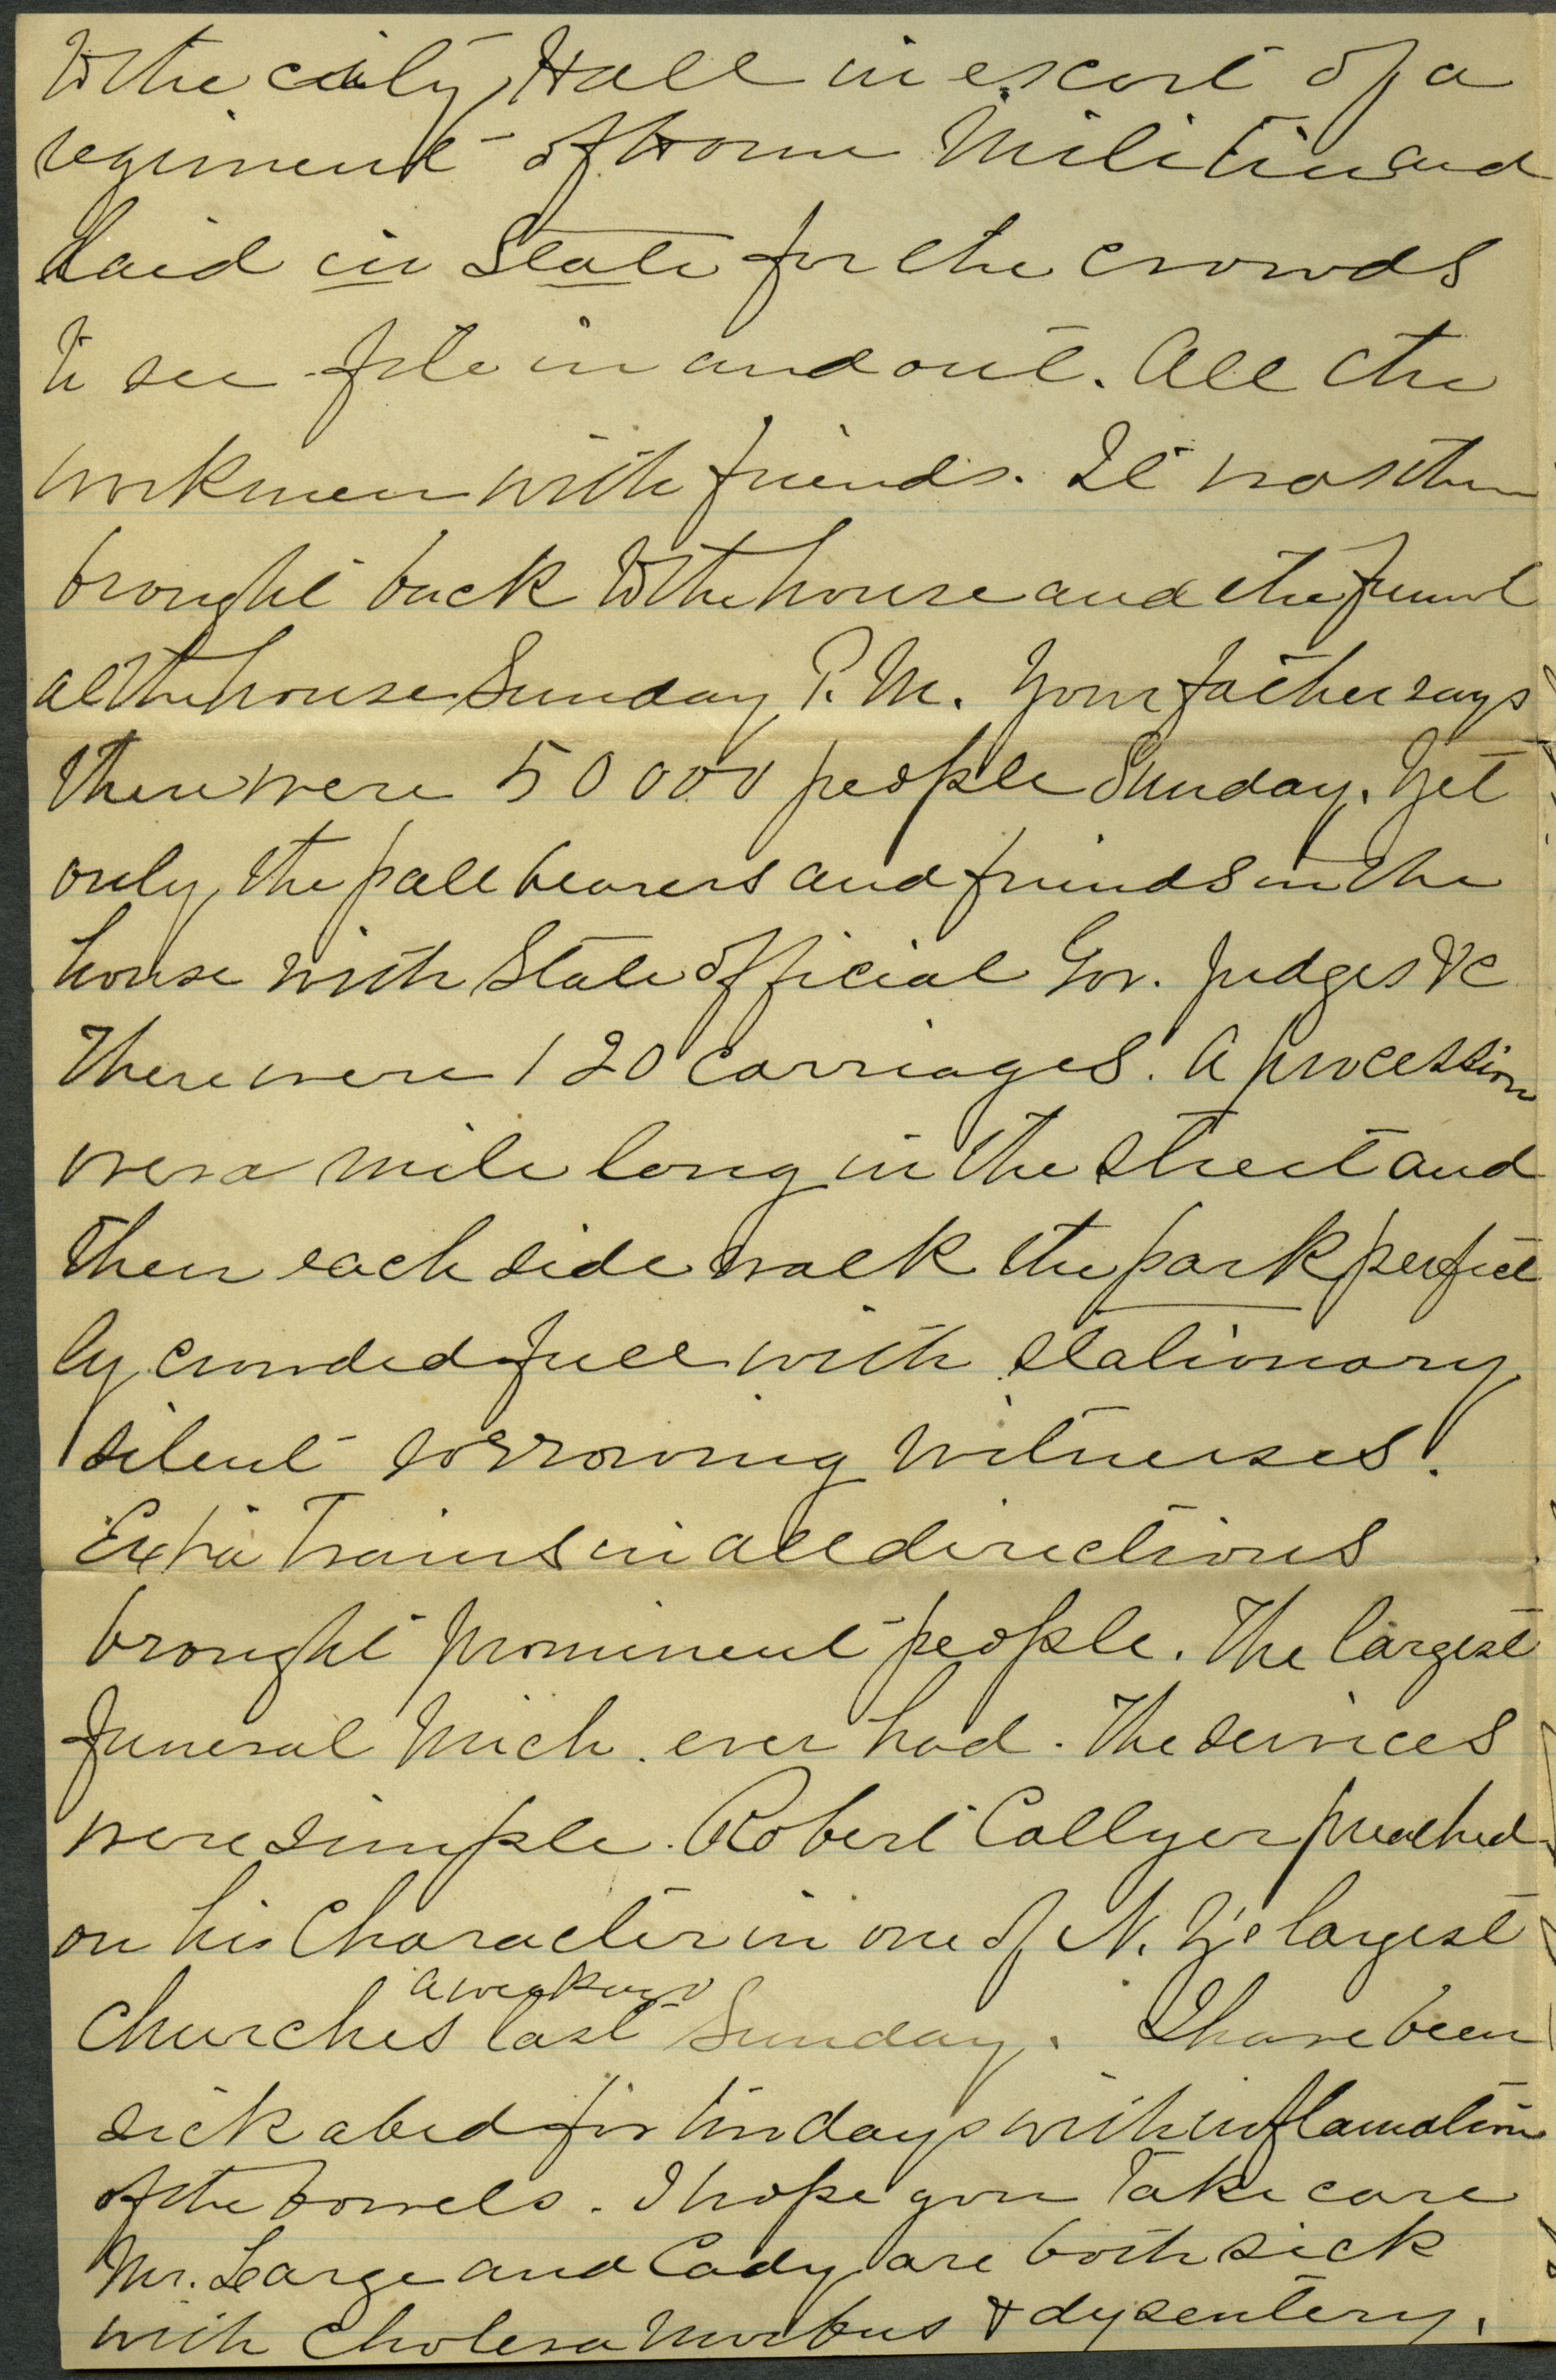 to the city Hall in escort of a
regiment of Home Militia and
laid in State for the crowds
to see file in and out. All the
workmen with friends. It was then
brought back to the house and the funeral
at the house Sunday P. M. Your father says
there were 50000 people Sunday. Yet
only the pall bearers and friends in the
house with State official Gov. Judges &c
There were 120 carriages. A procession
over a mile long in the street and
then each side walk the park perfect
ly crowded full with stationary
silent sorrowing witnesses!
Extra trains in all directions
brought prominent people. The largest
funeral Mich. ever had. The services
were simple. Robert Collyer preached
on his Character in one of N. Y's largest
a week ago
Churches last Sunday. I have been
sick abed for days with inflamation
of the bowels. I hope you take care
Mr. Large and Cady are both sick
with cholera morbus & dysentery.